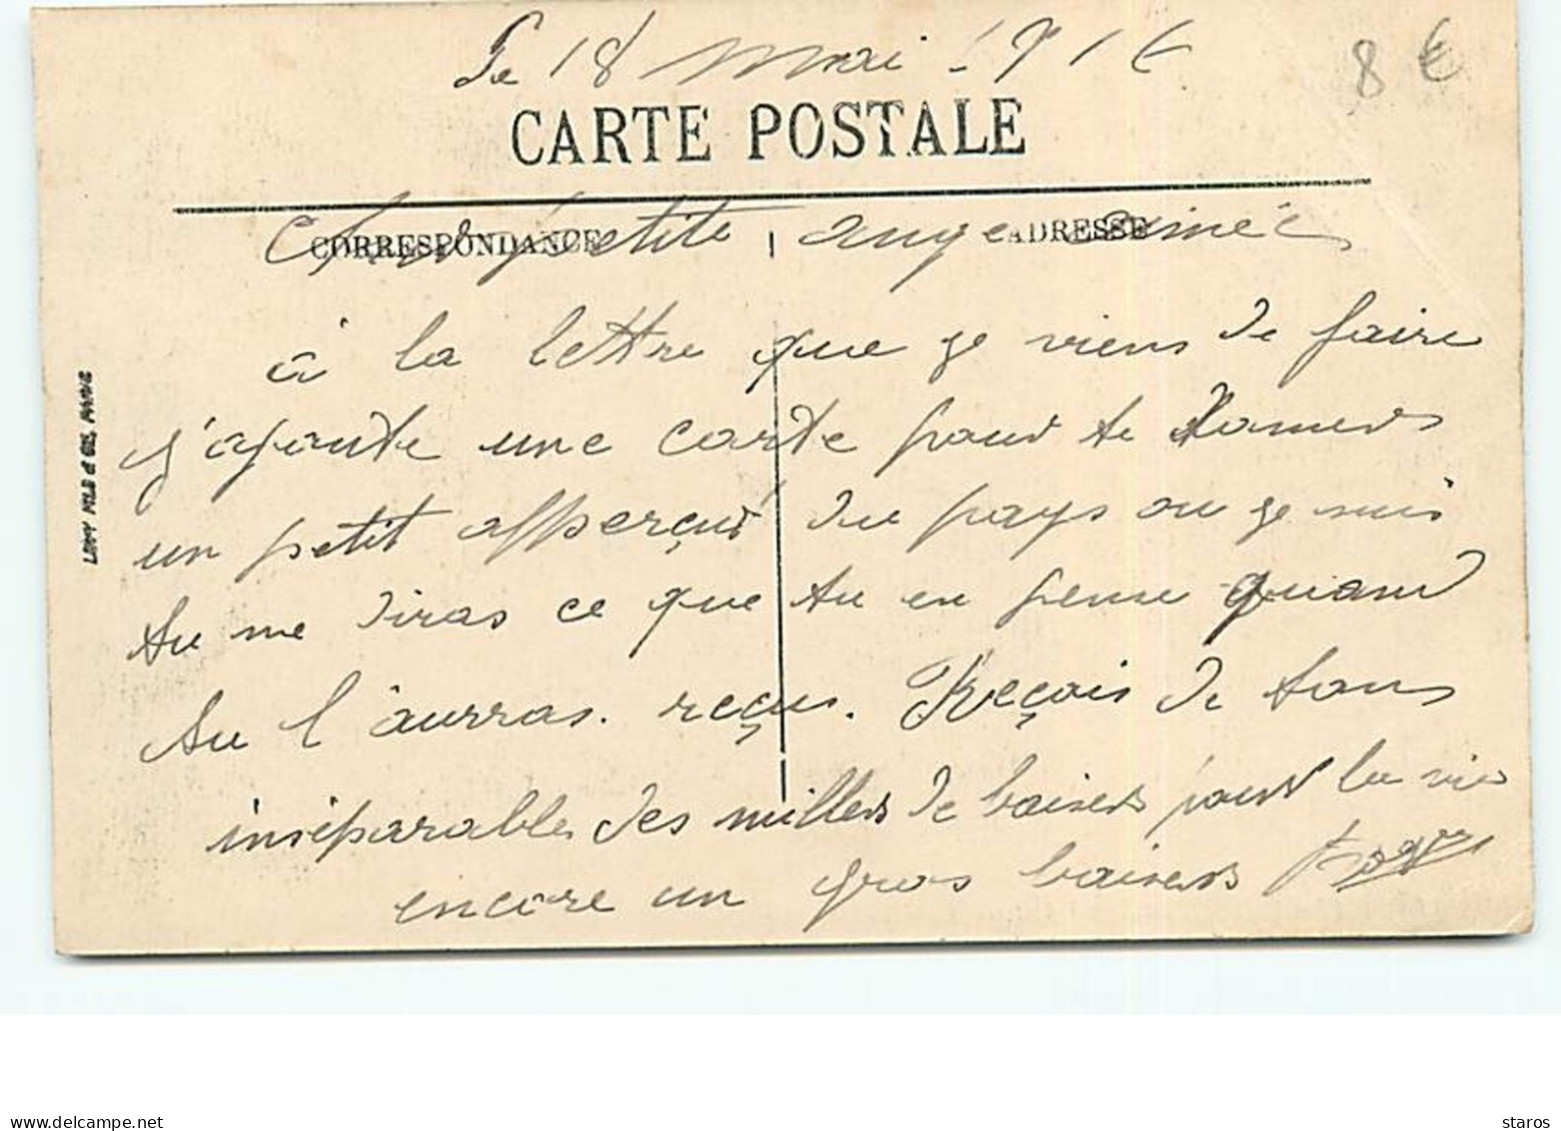 Le 18 mai 1916
8 €
CARTE POSTALE
CORRESPONDANCE
ADRESSE
Cher petite ange aimée
à la lettre que je viens de faire
j'ajoute une carte pour te donner
un petit apperçus du pays ou je suis
tu me diras ce que tu en pense quand
tu l'aurras reçus. Reçois de tons
inséparable des millers de baisers pour la vie
encore un gros baisers
LEVY FILS & CIE, PARIS
delcampe.net
staros